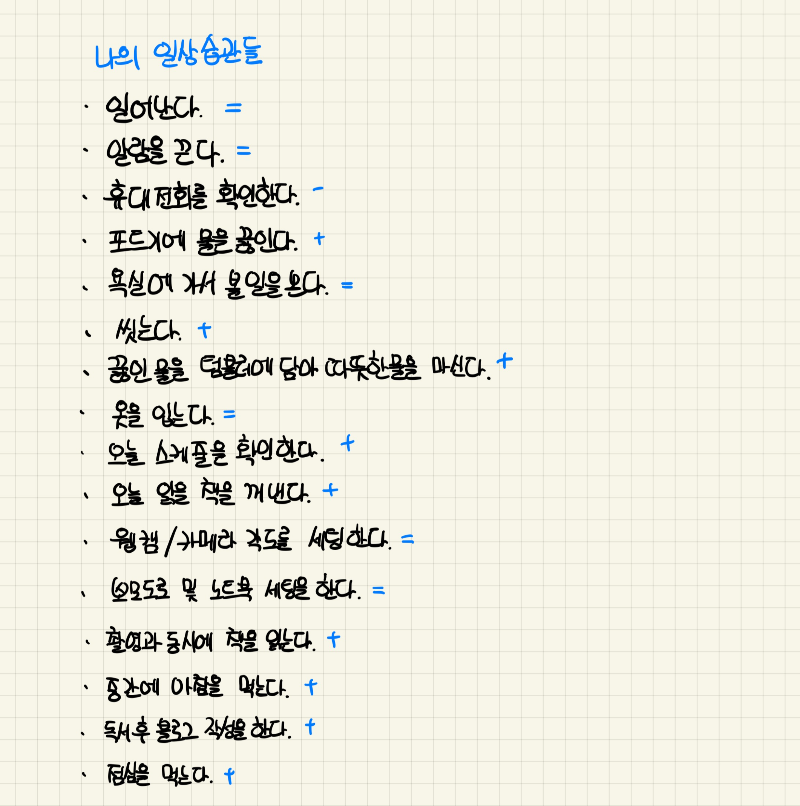 나의 일상습관들
· 일어난다. =
· 알람을 끈다. =
· 휴대전화를 확인한다. -
· 포트기에 물을 끓인다. +
· 욕실에 가서 볼일을 본다. =
· 씻는다. +
· 끓인 물을 텀블러에 담아 따뜻한물을 마신다. +
· 옷을 입는다. =
· 오늘 스케줄을 확인한다. +
· 오늘 읽을 책을 꺼낸다. +
· 웹캠/카메라 각도를 세팅한다. =
· 뽀모도로 및 노트북 세팅을 한다. =
· 촬영과 동시에 책을 읽는다. +
· 중간에 아침을 먹는다. +
· 독서 후 블로그 작성을 한다. +
· 점심을 먹는다. +